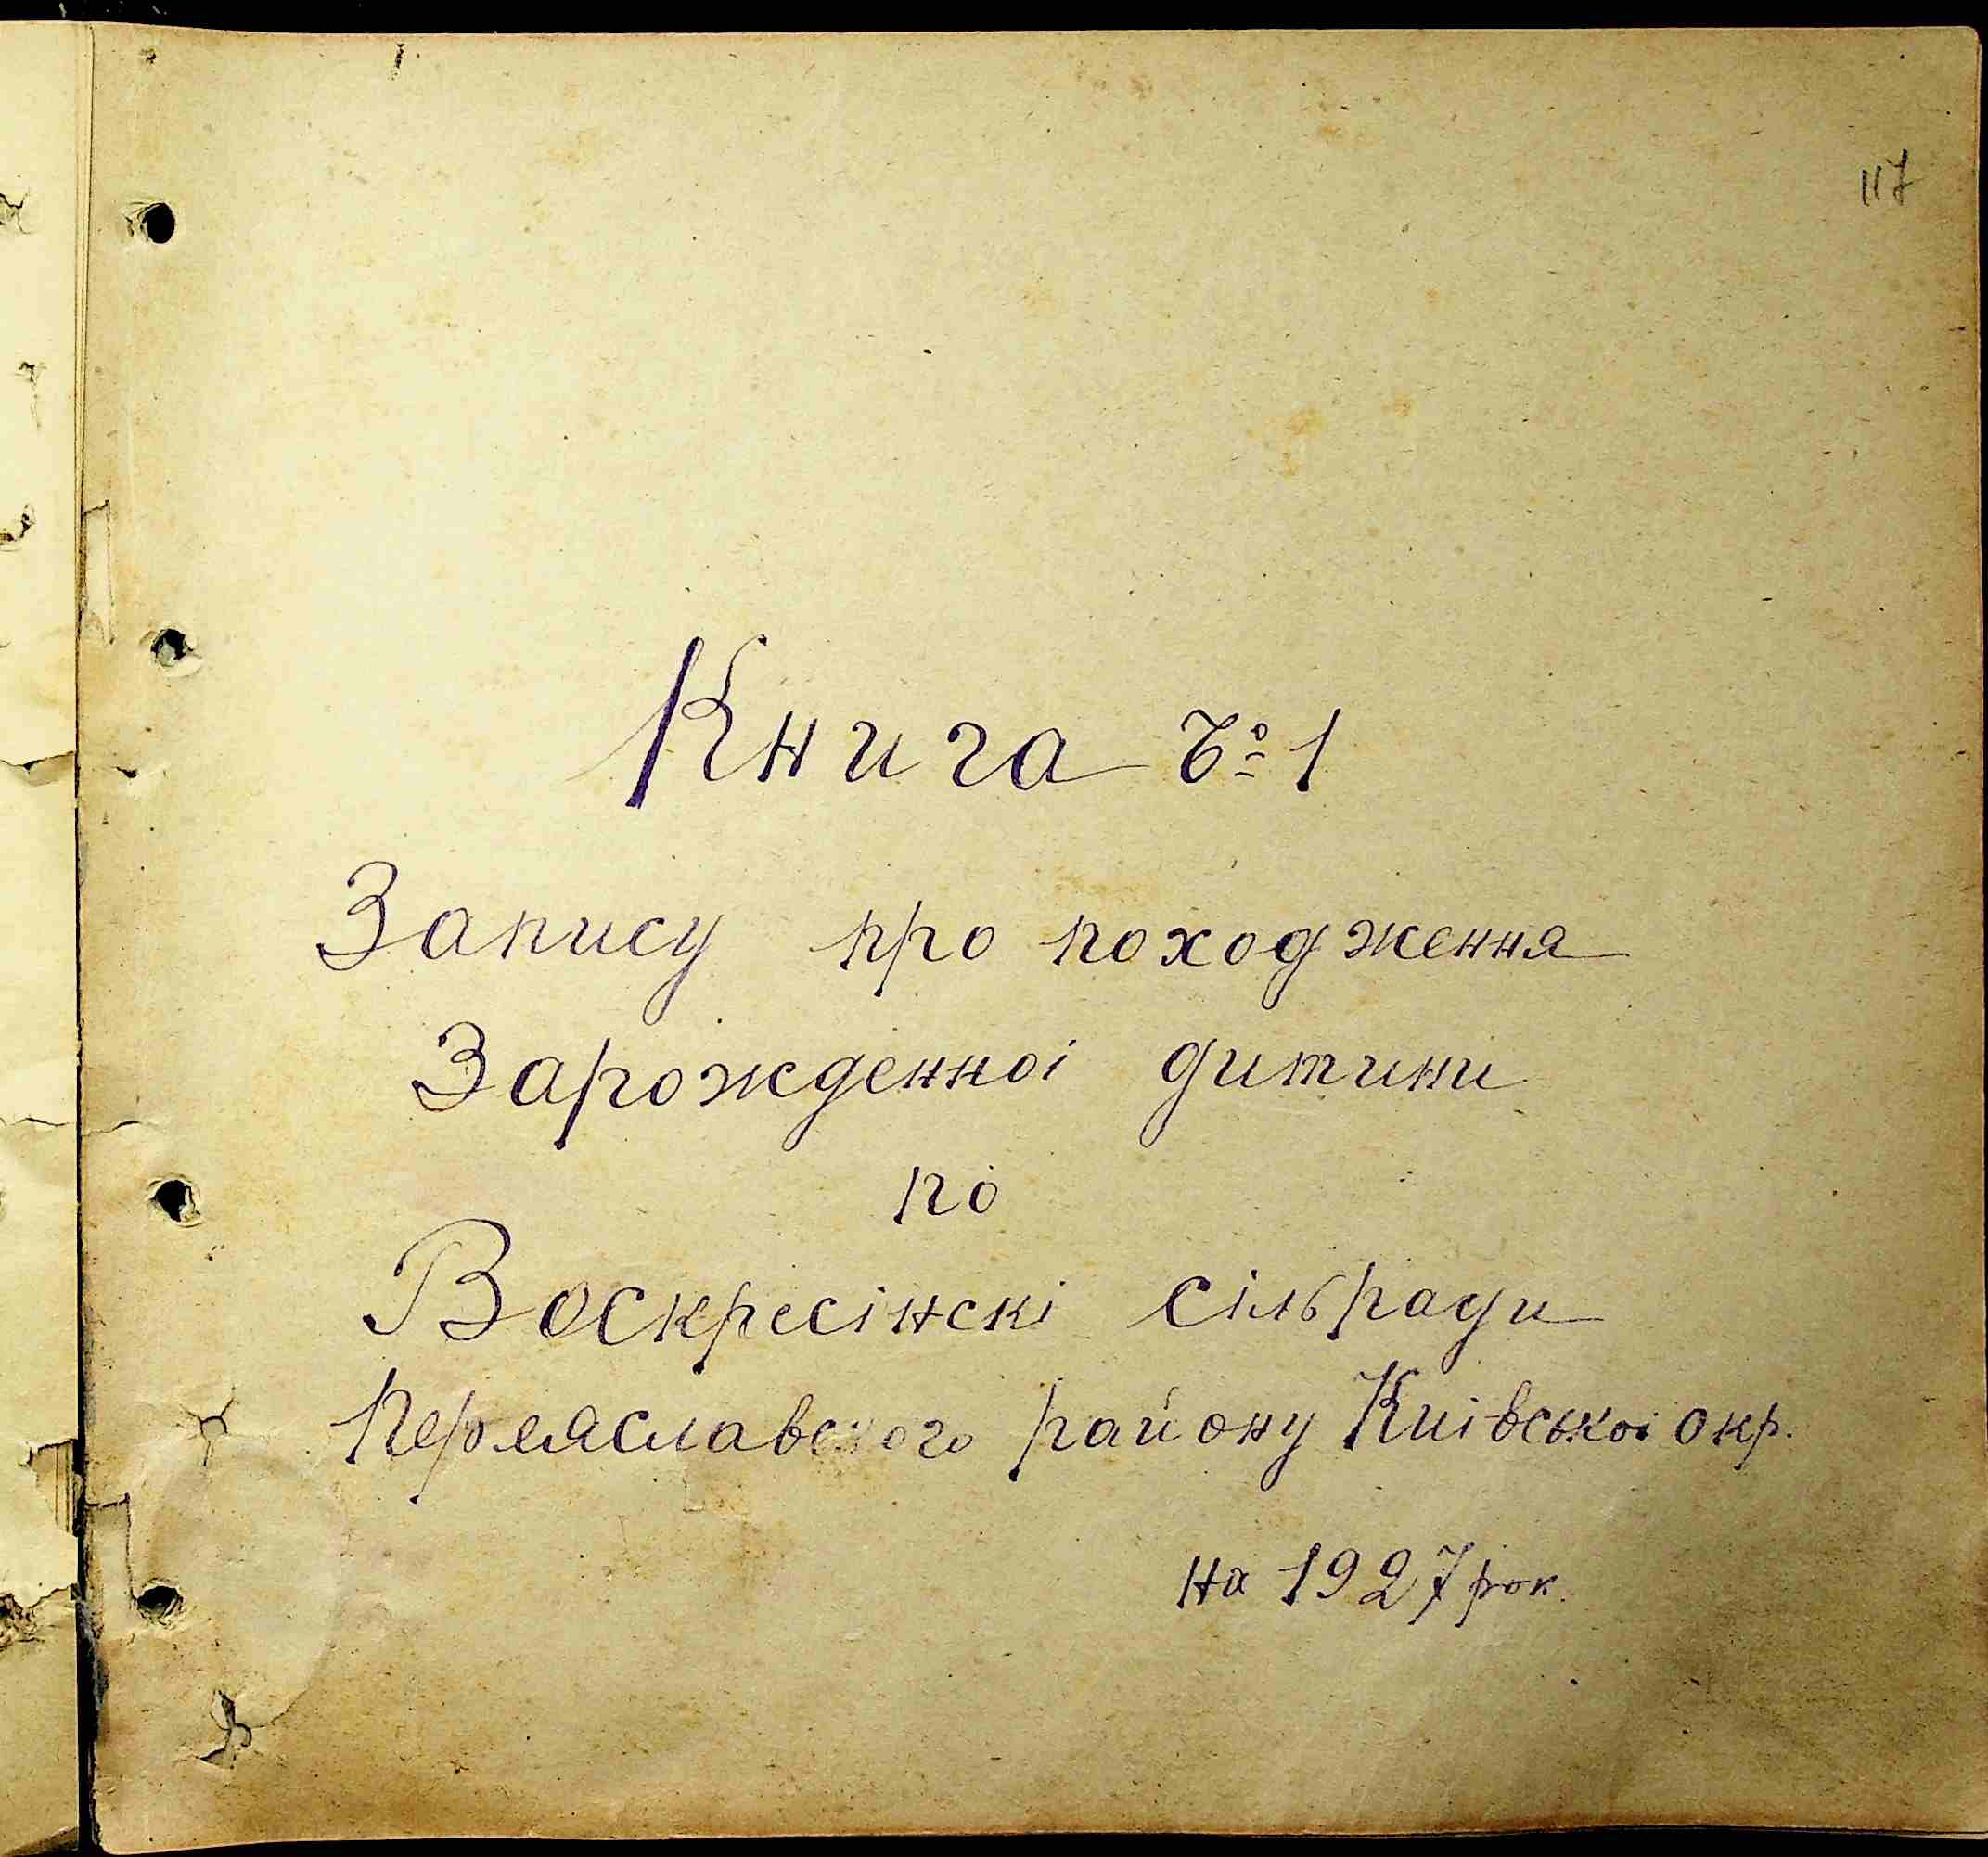 117
Книга № 1
Запису про походження
Зарожденноі дитини
по
Воскресінскі сільради
Переяславського району Киівськоі окр.
на 1927 рок.